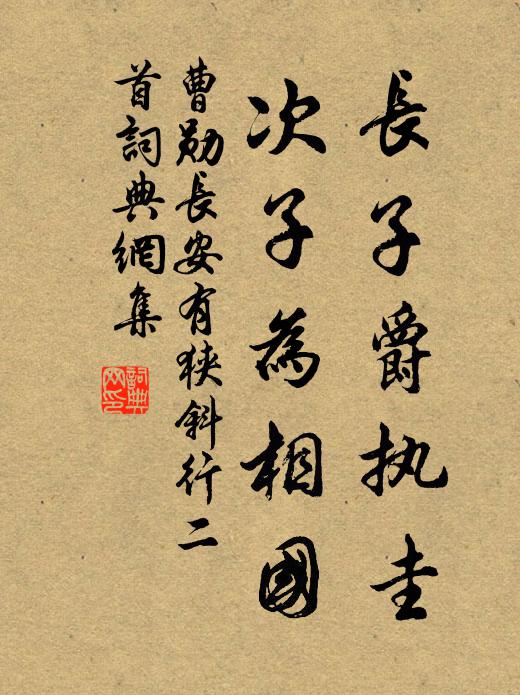 長子爵执圭
次子為相國
曹勛長安有狹斜行二
首詞典網集
詞典
网印